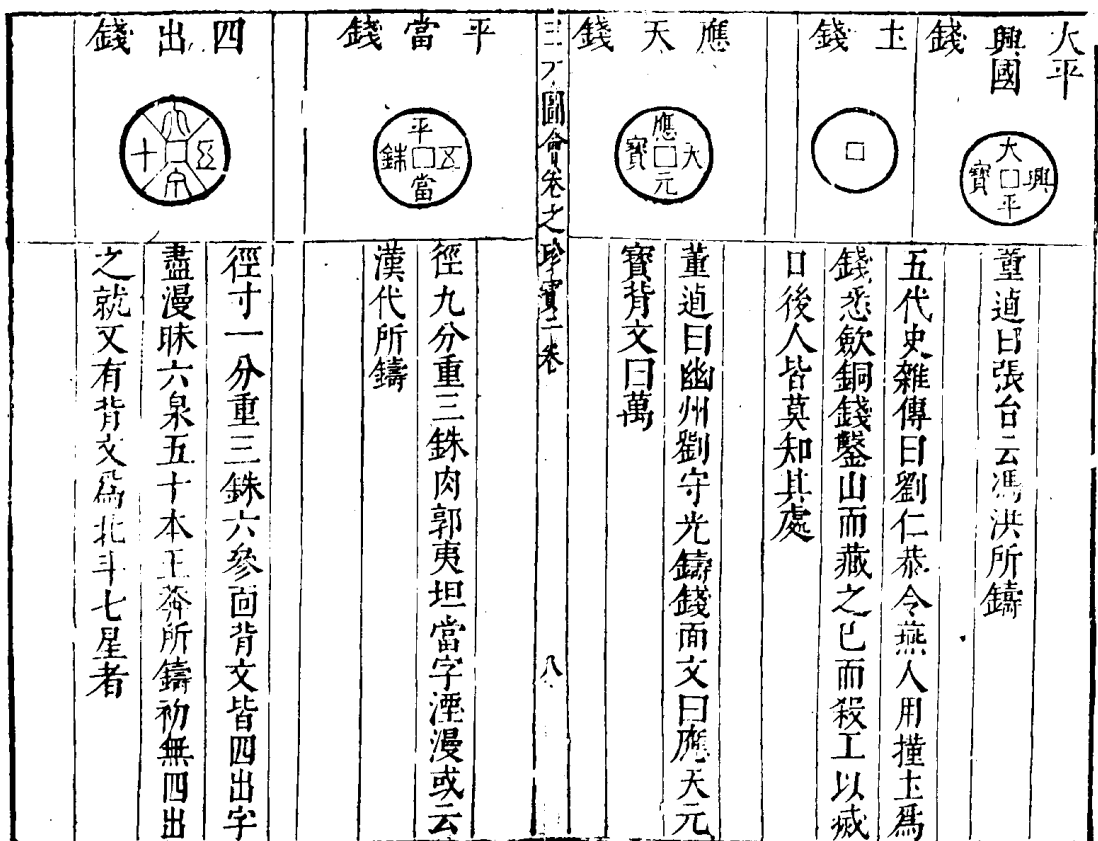 大平
興國
錢
大平興寶
董逌曰張台云馮洪所鑄
土錢
五代史雜傳曰劉仁恭令燕人用撞土爲
錢悉歛銅錢鑿山而藏之已而殺工以滅
口後人皆莫知其處
應天錢
應元大寶
董逌曰幽州劉守光鑄錢面文曰應天元
寶背文曰萬
三才圖會卷之珍寶二卷
八
平當錢
平當五銖
徑九分重三銖肉郭夷坦當字湮漫或云
漢代所鑄
四出錢
六泉五十
徑寸一分重三銖六參面背文皆四出字
盡漫昧六泉五十本王莽所鑄初無四出
之就又有背文爲北斗七星者